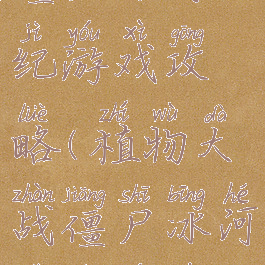 jì yóu xì gōng
纪游戏攻
lüè zhí wù dà
略(植物大
zhàn jiāng shī bīng hé
战僵尸冰河